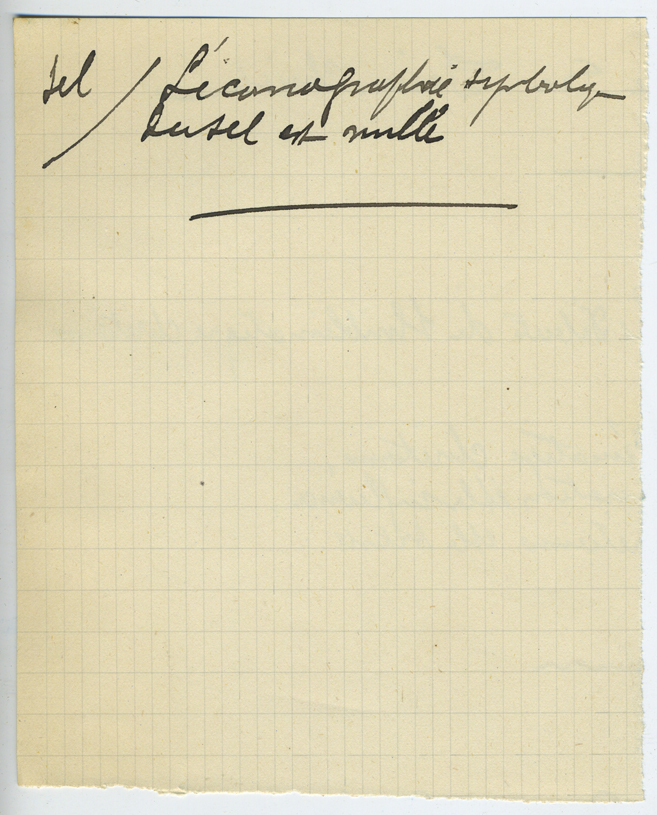 sel / L'iconographie symboliq
du sel est nulle